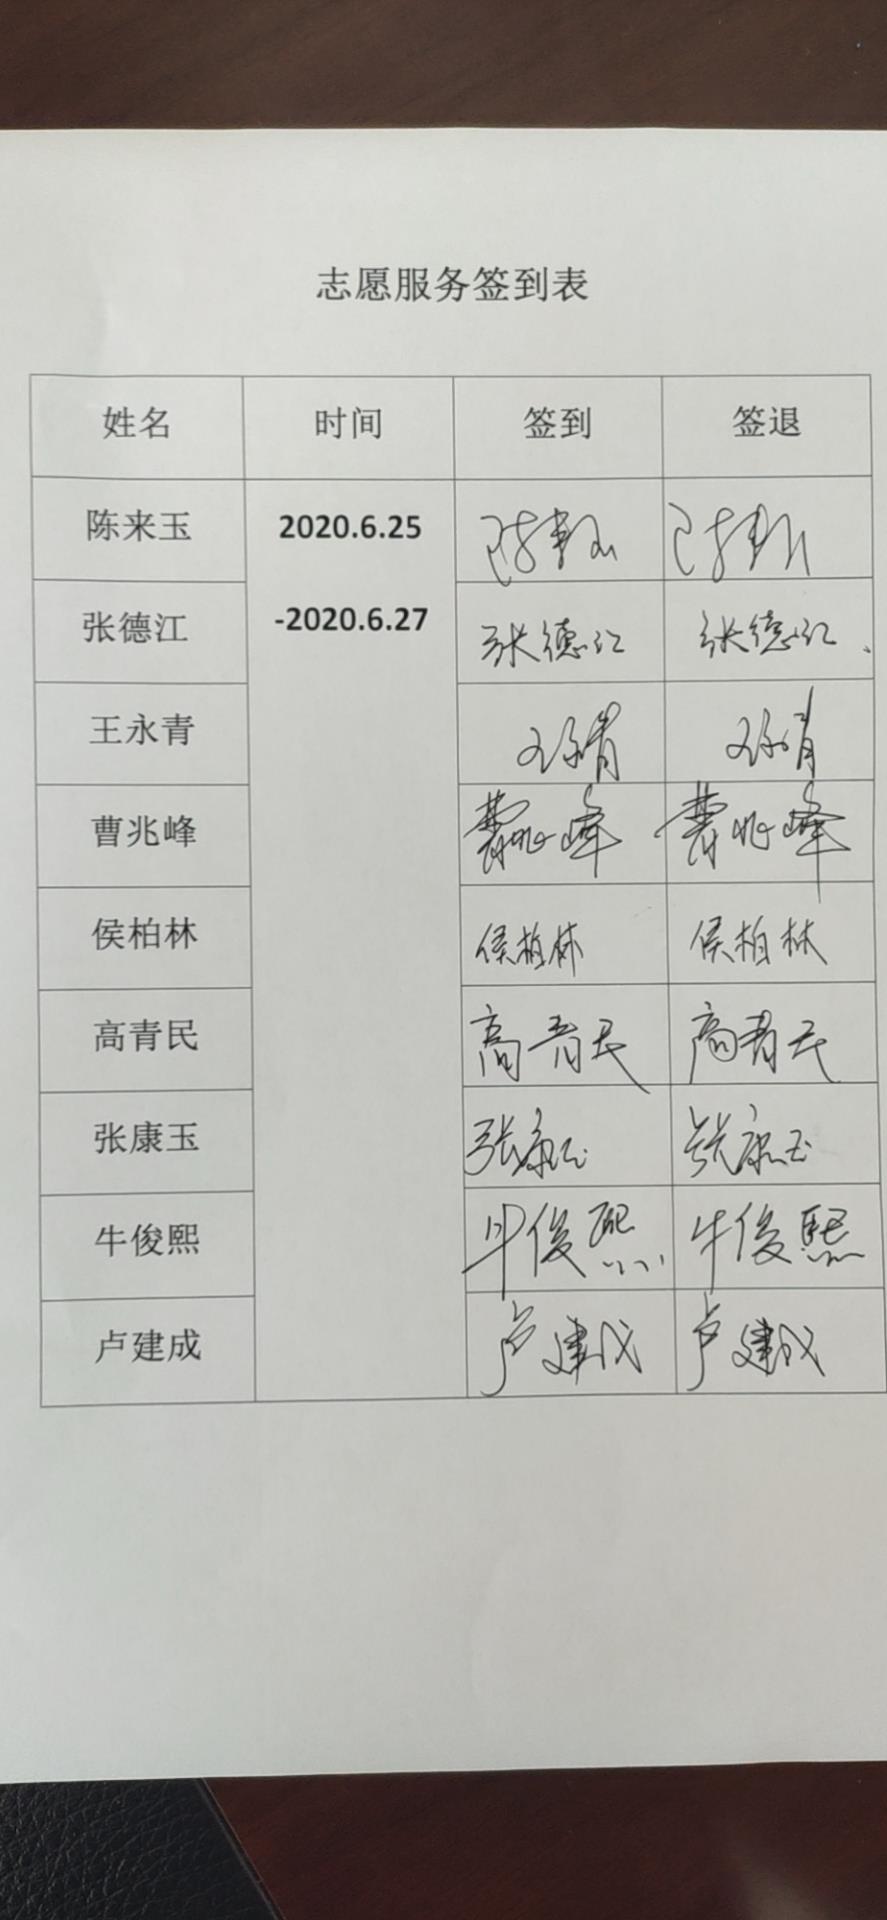 志愿服务签到表
姓名 时间 签到 签退
陈来玉 2020.6.25 陈来玉 陈来玉
张德江 -2020.6.27 张德江 张德江
王永青 王永青 王永青
曹兆峰 曹兆峰 曹兆峰
侯柏林 侯柏林 侯柏林
高青民 高青民 高青民
张康玉 张康玉 张康玉
牛俊熙 牛俊熙 牛俊熙
卢建成 卢建成 卢建成